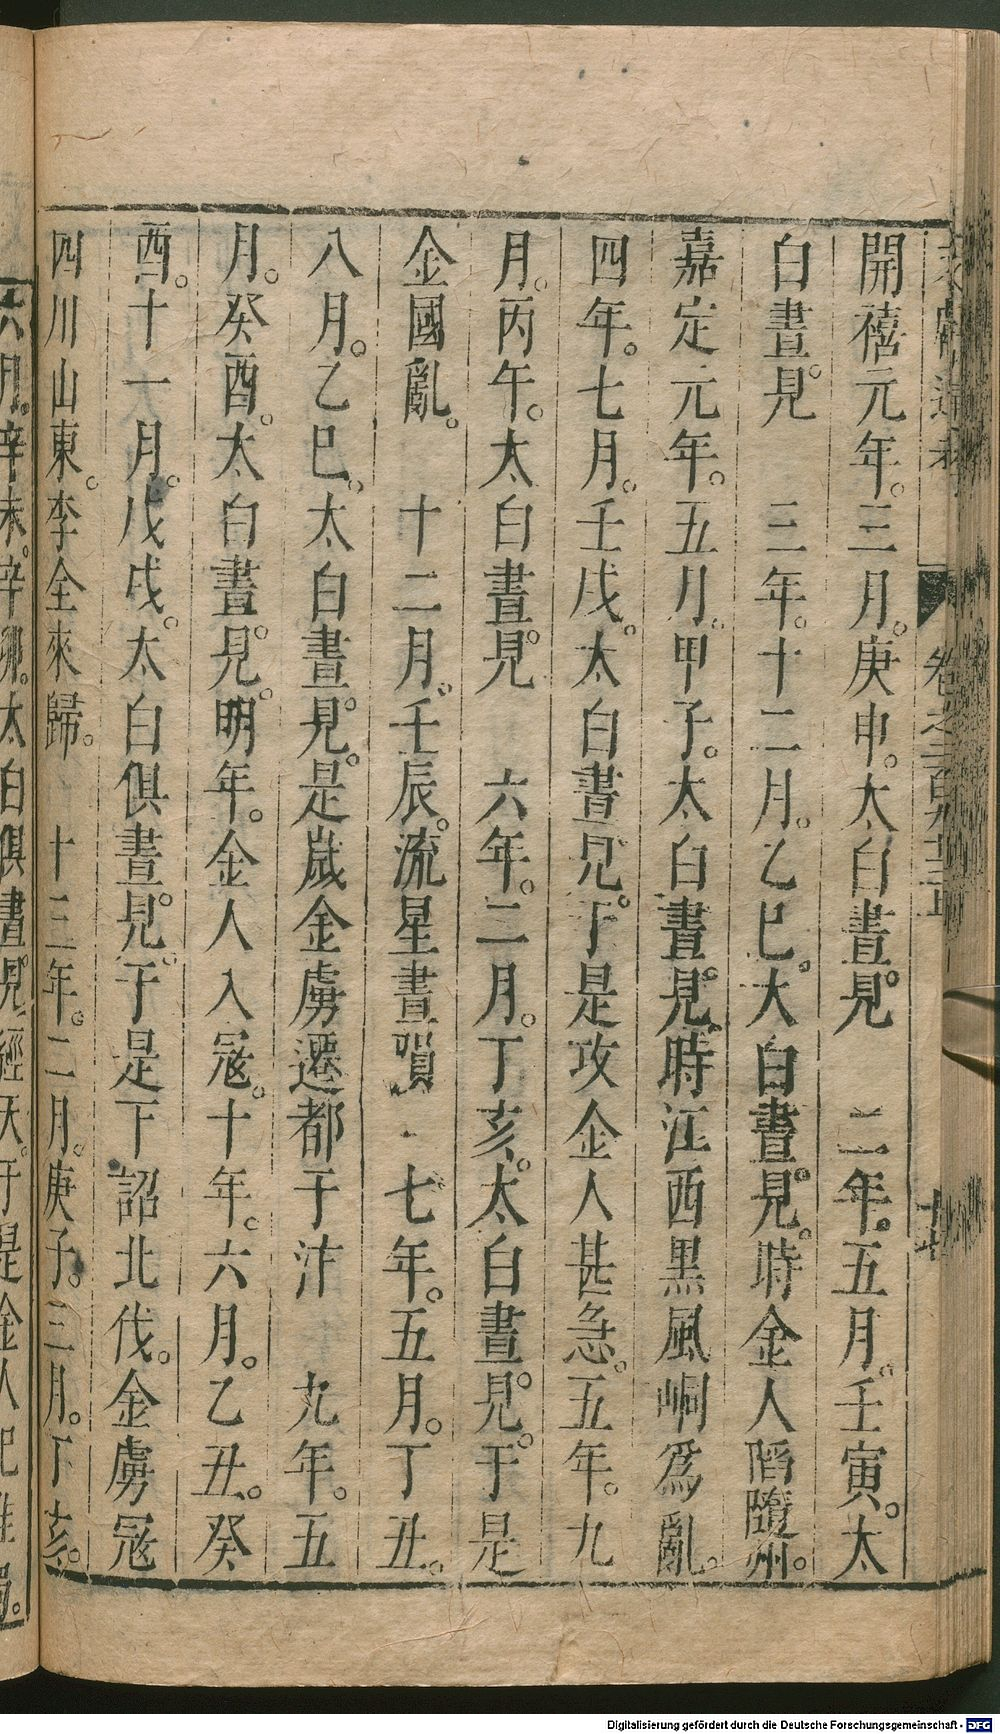 開禧元年。三月。庚申。太白晝見。　二年。五月。壬寅。太
白晝。見　三年。十二月。乙巳。大白晝見。時金人陷隨州。
嘉定元年。五月。甲子。太白晝見。時江西黑風峒爲亂。
四年。七月。壬戌。太白書見。于是攻金人甚急。五年。九
月。丙午。太白晝見。　六年。二月。丁亥。太白晝見。于是
金國亂。　十二月。壬辰。流星晝隕　七年。五月。丁丑。
八月。乙巳。太白晝見。是歲金虜遷都于汴　九年。五
月。癸酉。太白晝見。明年。金人入寇。十年。六月。乙丑。癸
酉。十一月。戊戌。太白俱晝見。于是下詔北伐。金虜寇
四川山東。李全來歸。　十三年。二月。庚子。三月。丁亥。
六月。辛未。辛卯。太白俱晝見。經天。于是金人
卷之二百
Digitalisierung gefördert durch die Deutsche Forschungsgemeinschaft - DFG